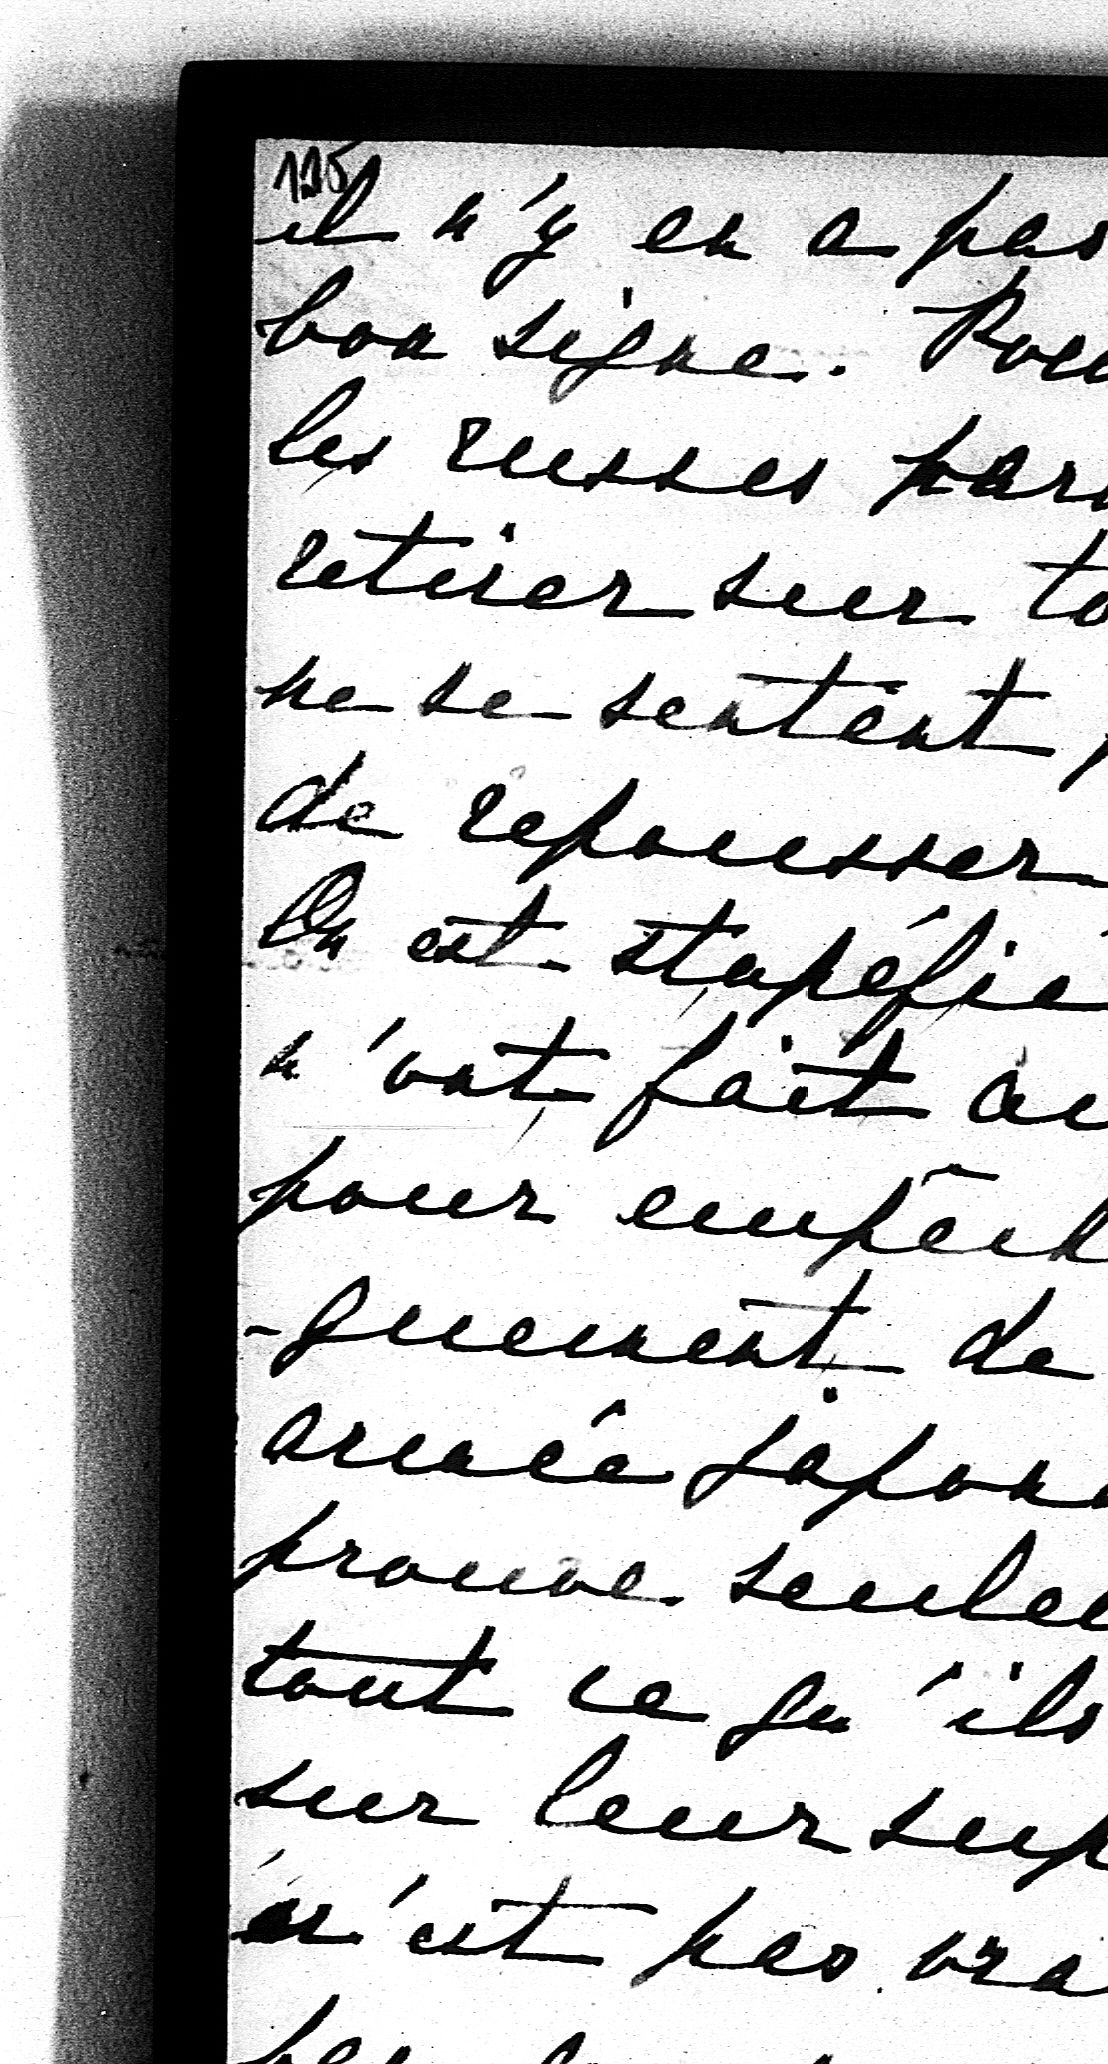 125
il n'y en a pas
bon signe. Pou
les russes par
retirer sur to
ne se sentent
de repousser
On est stupéfié
n'ont fait au
pour empêch
-quement de
armée japon
prouve seule
tout ce qu'ils
sur leur sup
n'est pas vra